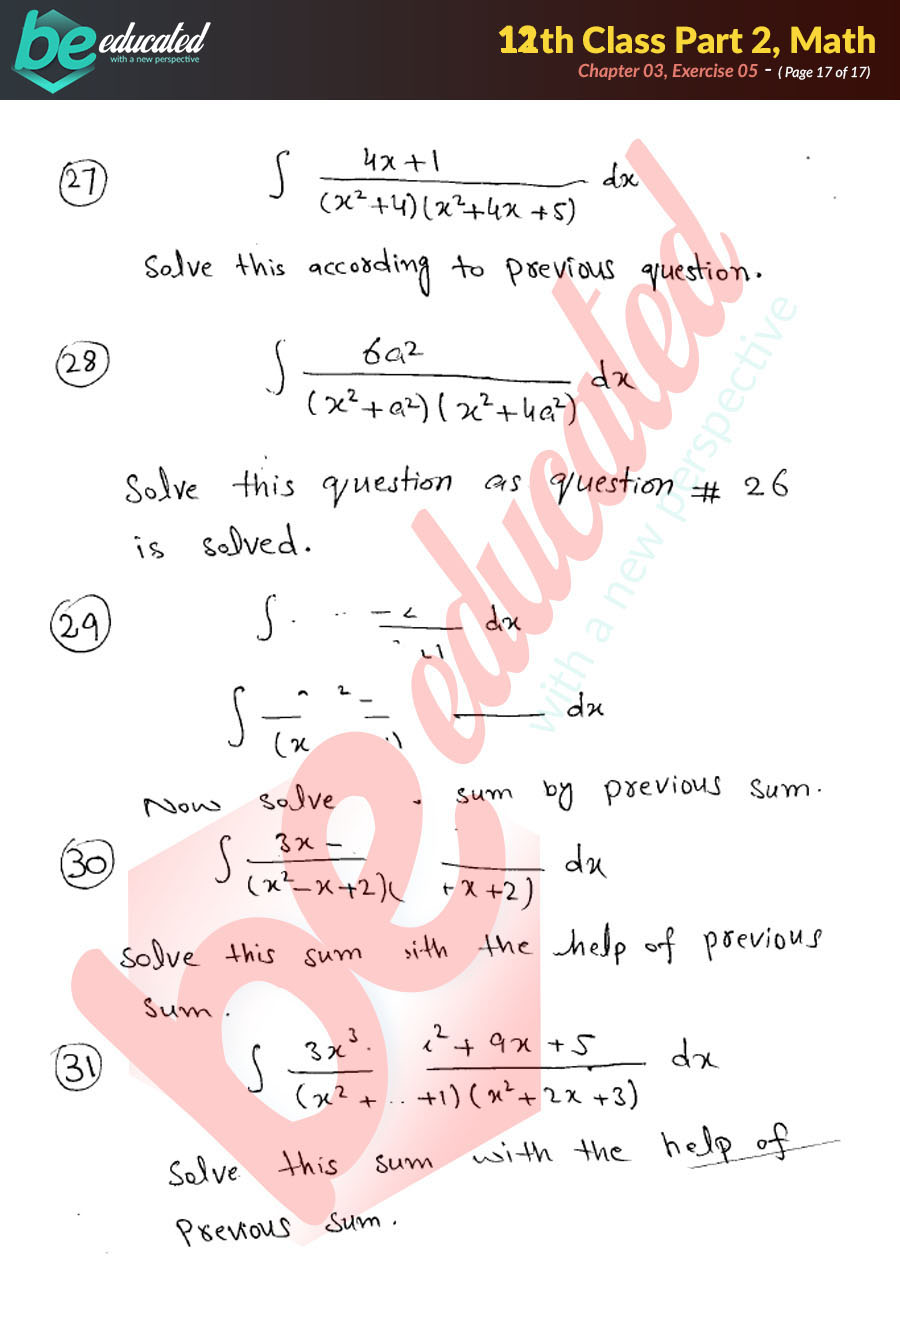 be educated
with a new perspective
12th Class Part 2, Math
Chapter 03, Exercise 05 - ( Page 17 of 17)
(27) ∫ (4x+1)/((x²+4)(x²+4x+5)) dx
Solve this according to previous question.
(28) ∫ 6a²/((x²+a²)(x²+4a²)) dx
Solve this question as question # 26
is solved.
(29) ∫ dx
∫ (x dx
Now solve sum by previous sum.
(30) ∫ 3x - (x²-x+2)( +x+2) dx
Solve this sum with the help of previous
sum.
(31) ∫ 3x³ ² + 9x + 5 (x² + +1)(x²+2x+3) dx
Solve this sum with the help of
Previous sum.
be educated
with a new perspective